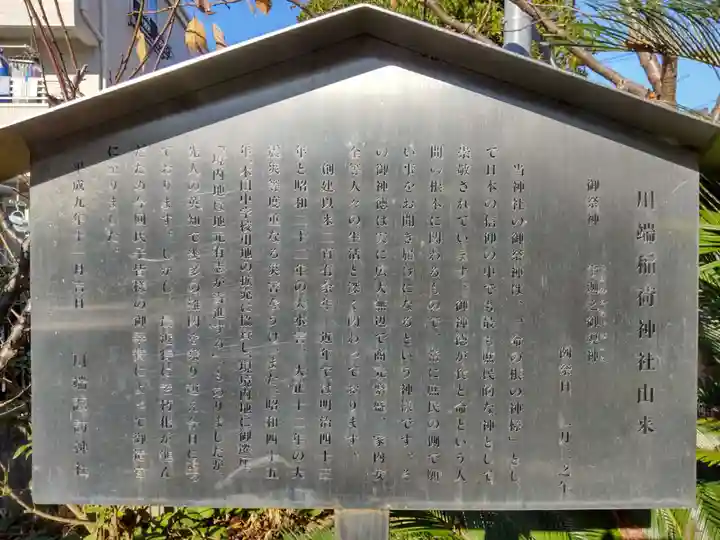 川端稲荷神社由来
御祭神
例祭日 二月 之午
当神社の御祭神は、「命の根の神様」とし
て日本の信仰の中でも最も庶民的な神として
崇敬されています。御神徳が食と命という人
間の根本に関わるもので、常に庶民の側で願
い事をお聞き届けになるという神様です。そ
の御神徳は実に広大無辺で商売繁盛、家内安
全等人々の生活と深く関わっております。
創建以来二百有余年、近年では明治四十三
年と昭和二十二年の大水害、大正十二年の大
震災等度重なる災害をうけ、また、昭和四十五
年、本田中学校用地の拡充に協賛し現境内地に御遷座
先人の英知で 多の難関を乗り越え今日に至っ
ております。しかし、最近 に老朽化が進ん
だため 氏子皆様の御 によって御造営
に至りました。
平成九年十一月吉日 川端稲荷神社